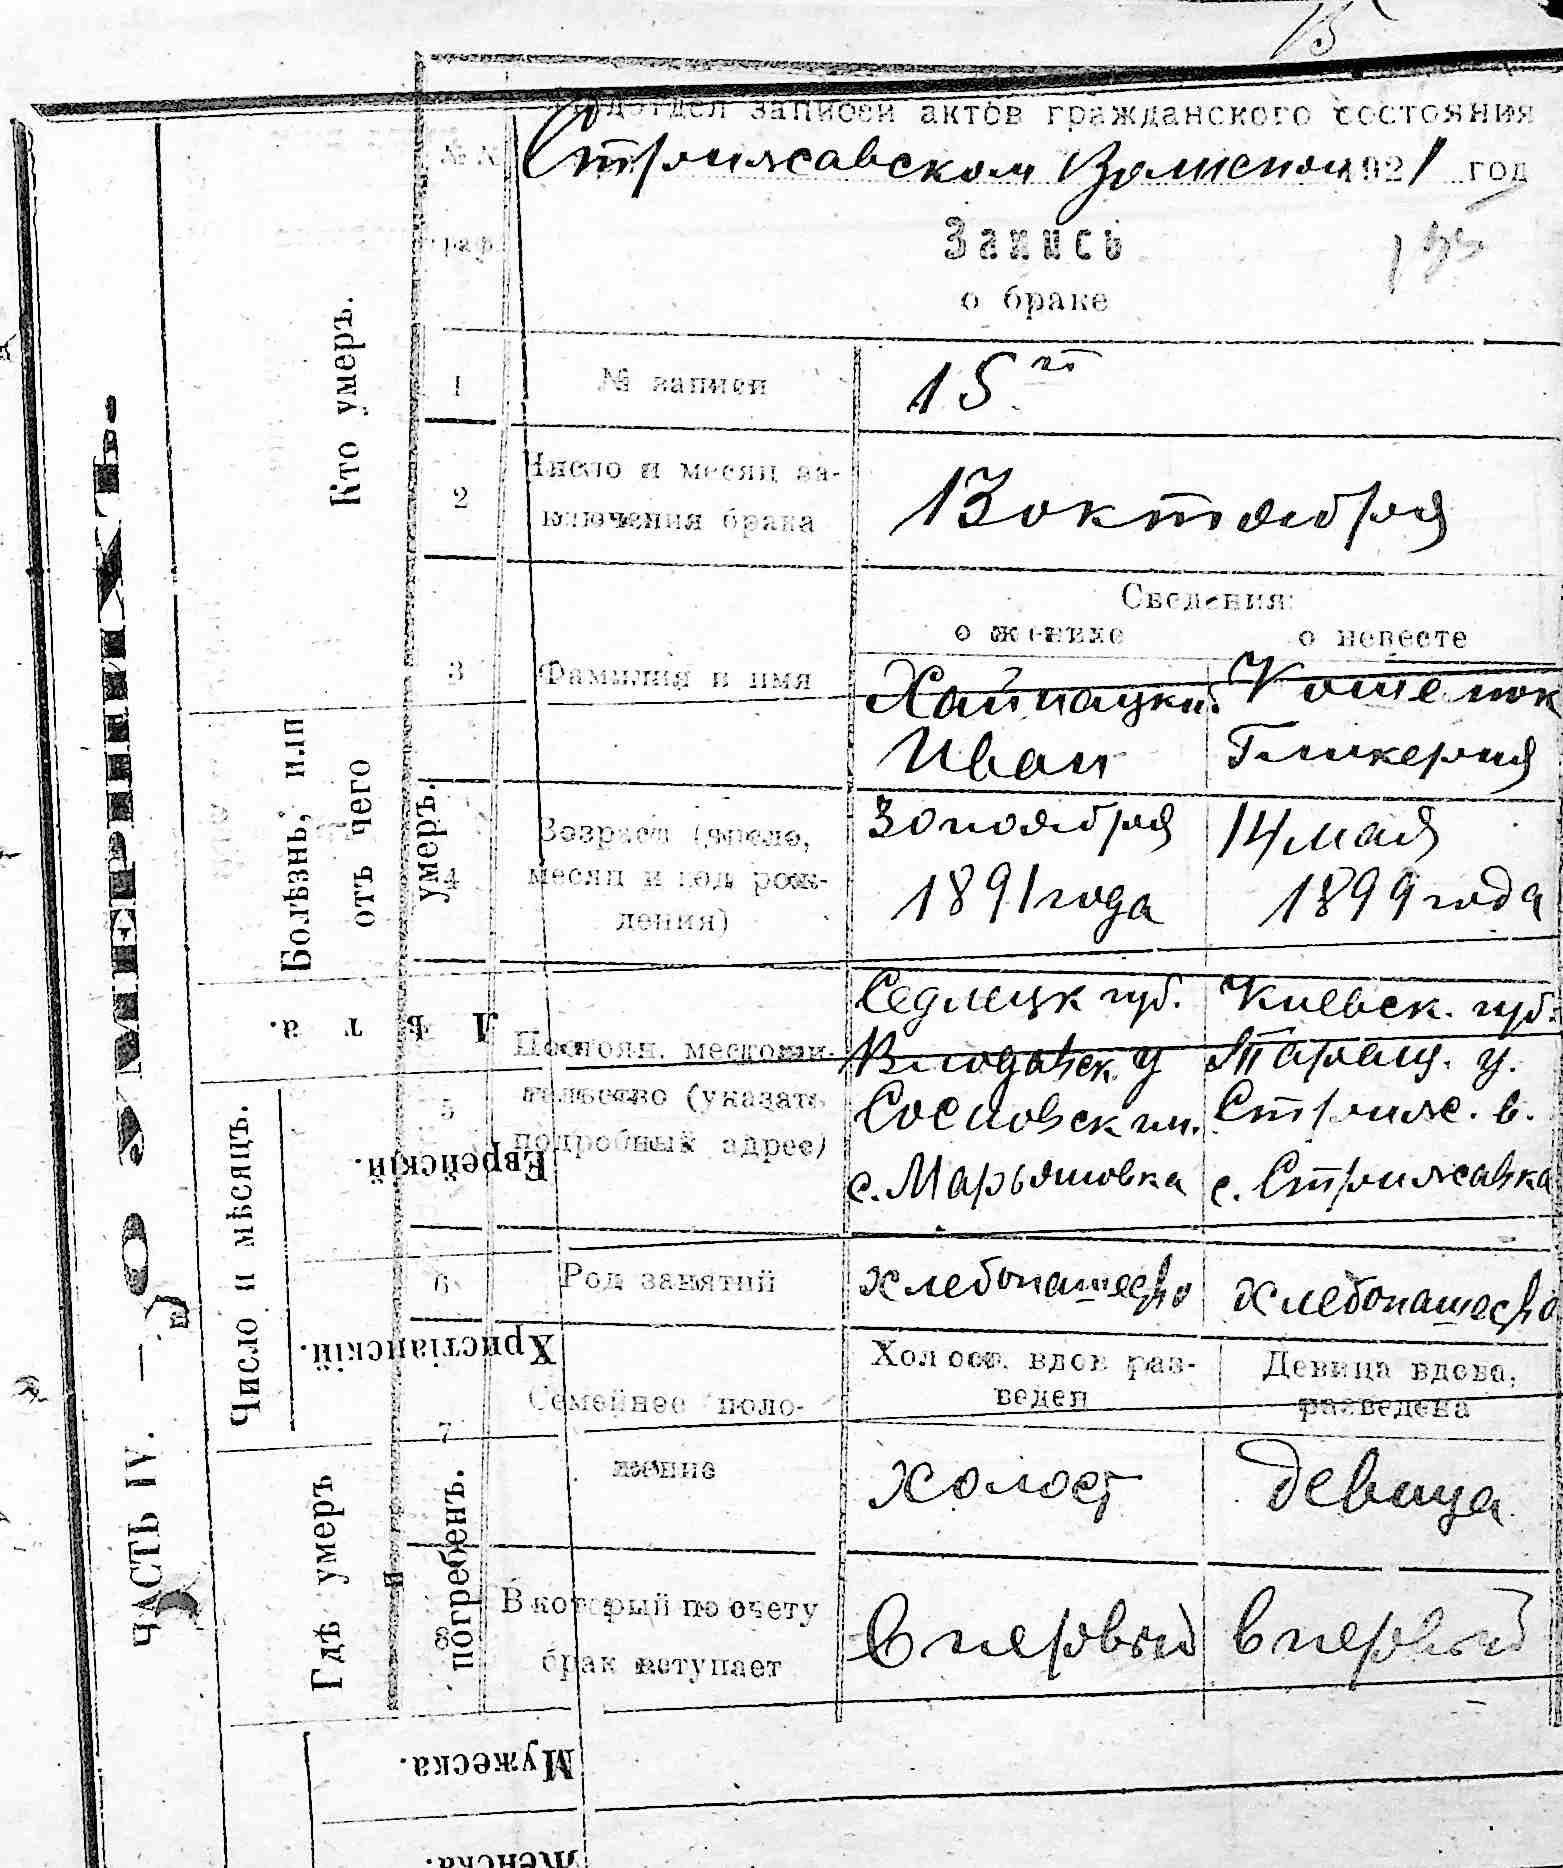 15
Подотдел записей актов гражданского состояния
Стрижавском Волисном 1921 год
№№
граф
Запись
о браке
1 № записи 15го
2 Число и месяц за-
ключения брака
13 октября
Сведения:
о женихе о невесте
3 Фамилия и имя
Хайнацкий Кошелюк
Иван Гликерия
4 Возраст (число,
месяц и год рож-
дения)
30 ноября 14 мая
1891 года 1899 года
5 Постоян. местожи-
тельство (указать
подробный адрес)
Седлецк губ. Киевск. губ.
Влодавск у Таращ. у.
Сосновск гм. Стриж. в.
с. Марьяновка с. Стрижавка
6 Род занятий
хлебопашество хлебопашество
7 Семейное поло-
жение
Холост, вдов раз-
веден
Девица вдова,
разведена
холост девица
8 В который по счету
брак вступает
в первый в первый
ЧАСТЬ IV. — О УМЕРШИХЪ.
Кто умеръ.
Болѣзнь, или
отъ чего
умеръ.
Лѣта.
Число и мѣсяцъ.
Еврейскій.
Христіанскій.
Гдѣ умеръ
и
погребенъ.
Мужеска.
Женска.